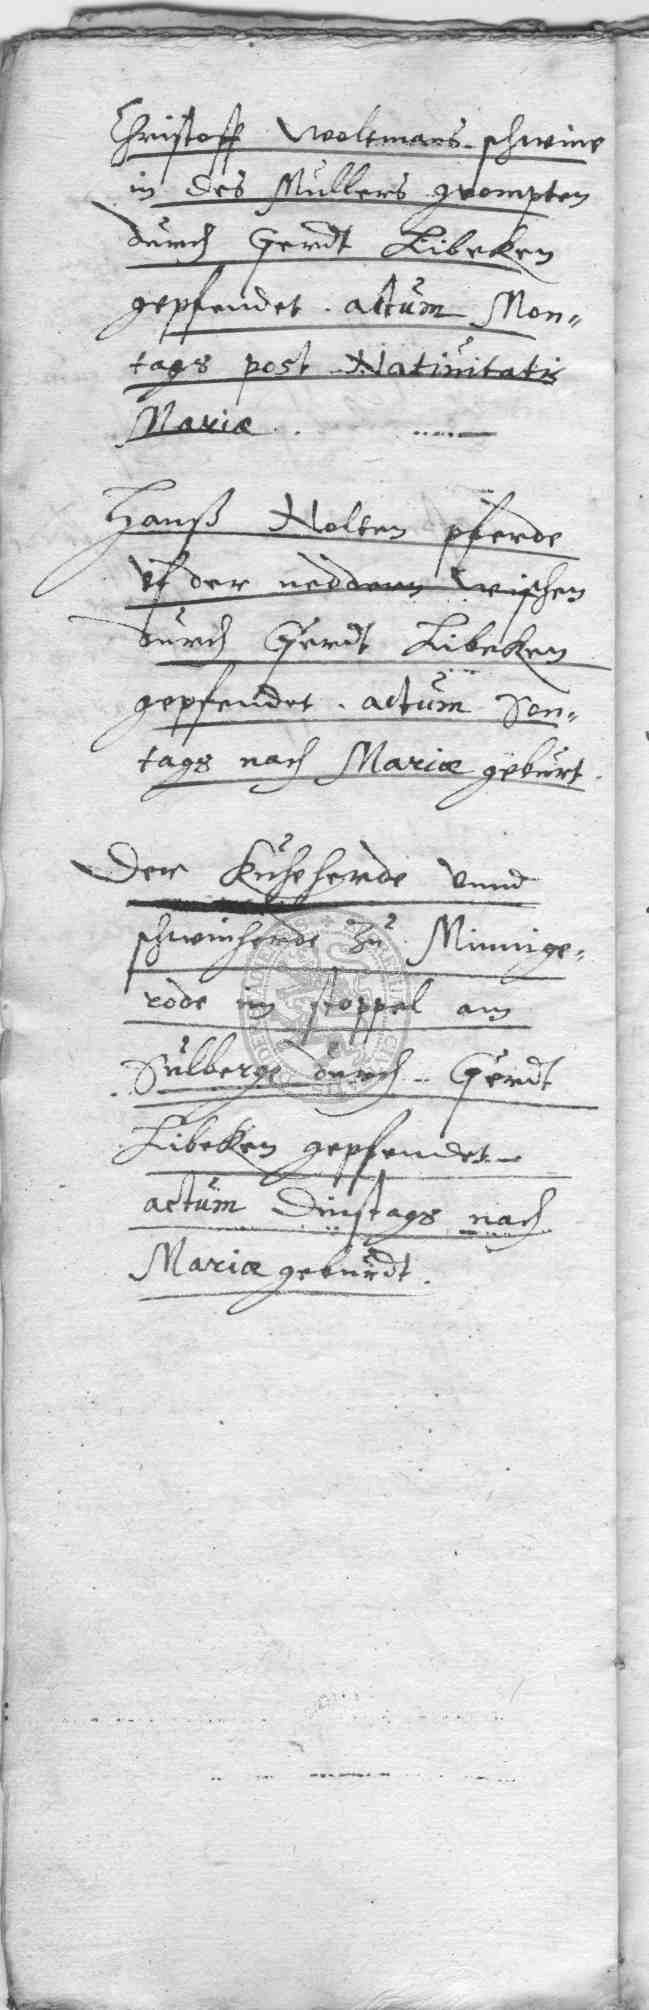 Christoff Woltmans schweine
in des Müllers grompten
durch Gerdt Libeken
gepfendet. actum Mon=
tags post Natiuitatis
Mariæ.
Hanß Nolten pferde
vf der neddern wischen
durch Gerdt Libeken
gepfendet. actum Son=
tags nach Mariæ geburt.
Der Küheherde vnnd
schweinherde zu Minnige=
rode im stoppel am
Sülberge durch Gerdt
Libeken gepfendet
actum Dinstags nach
Mariæ geburdt.